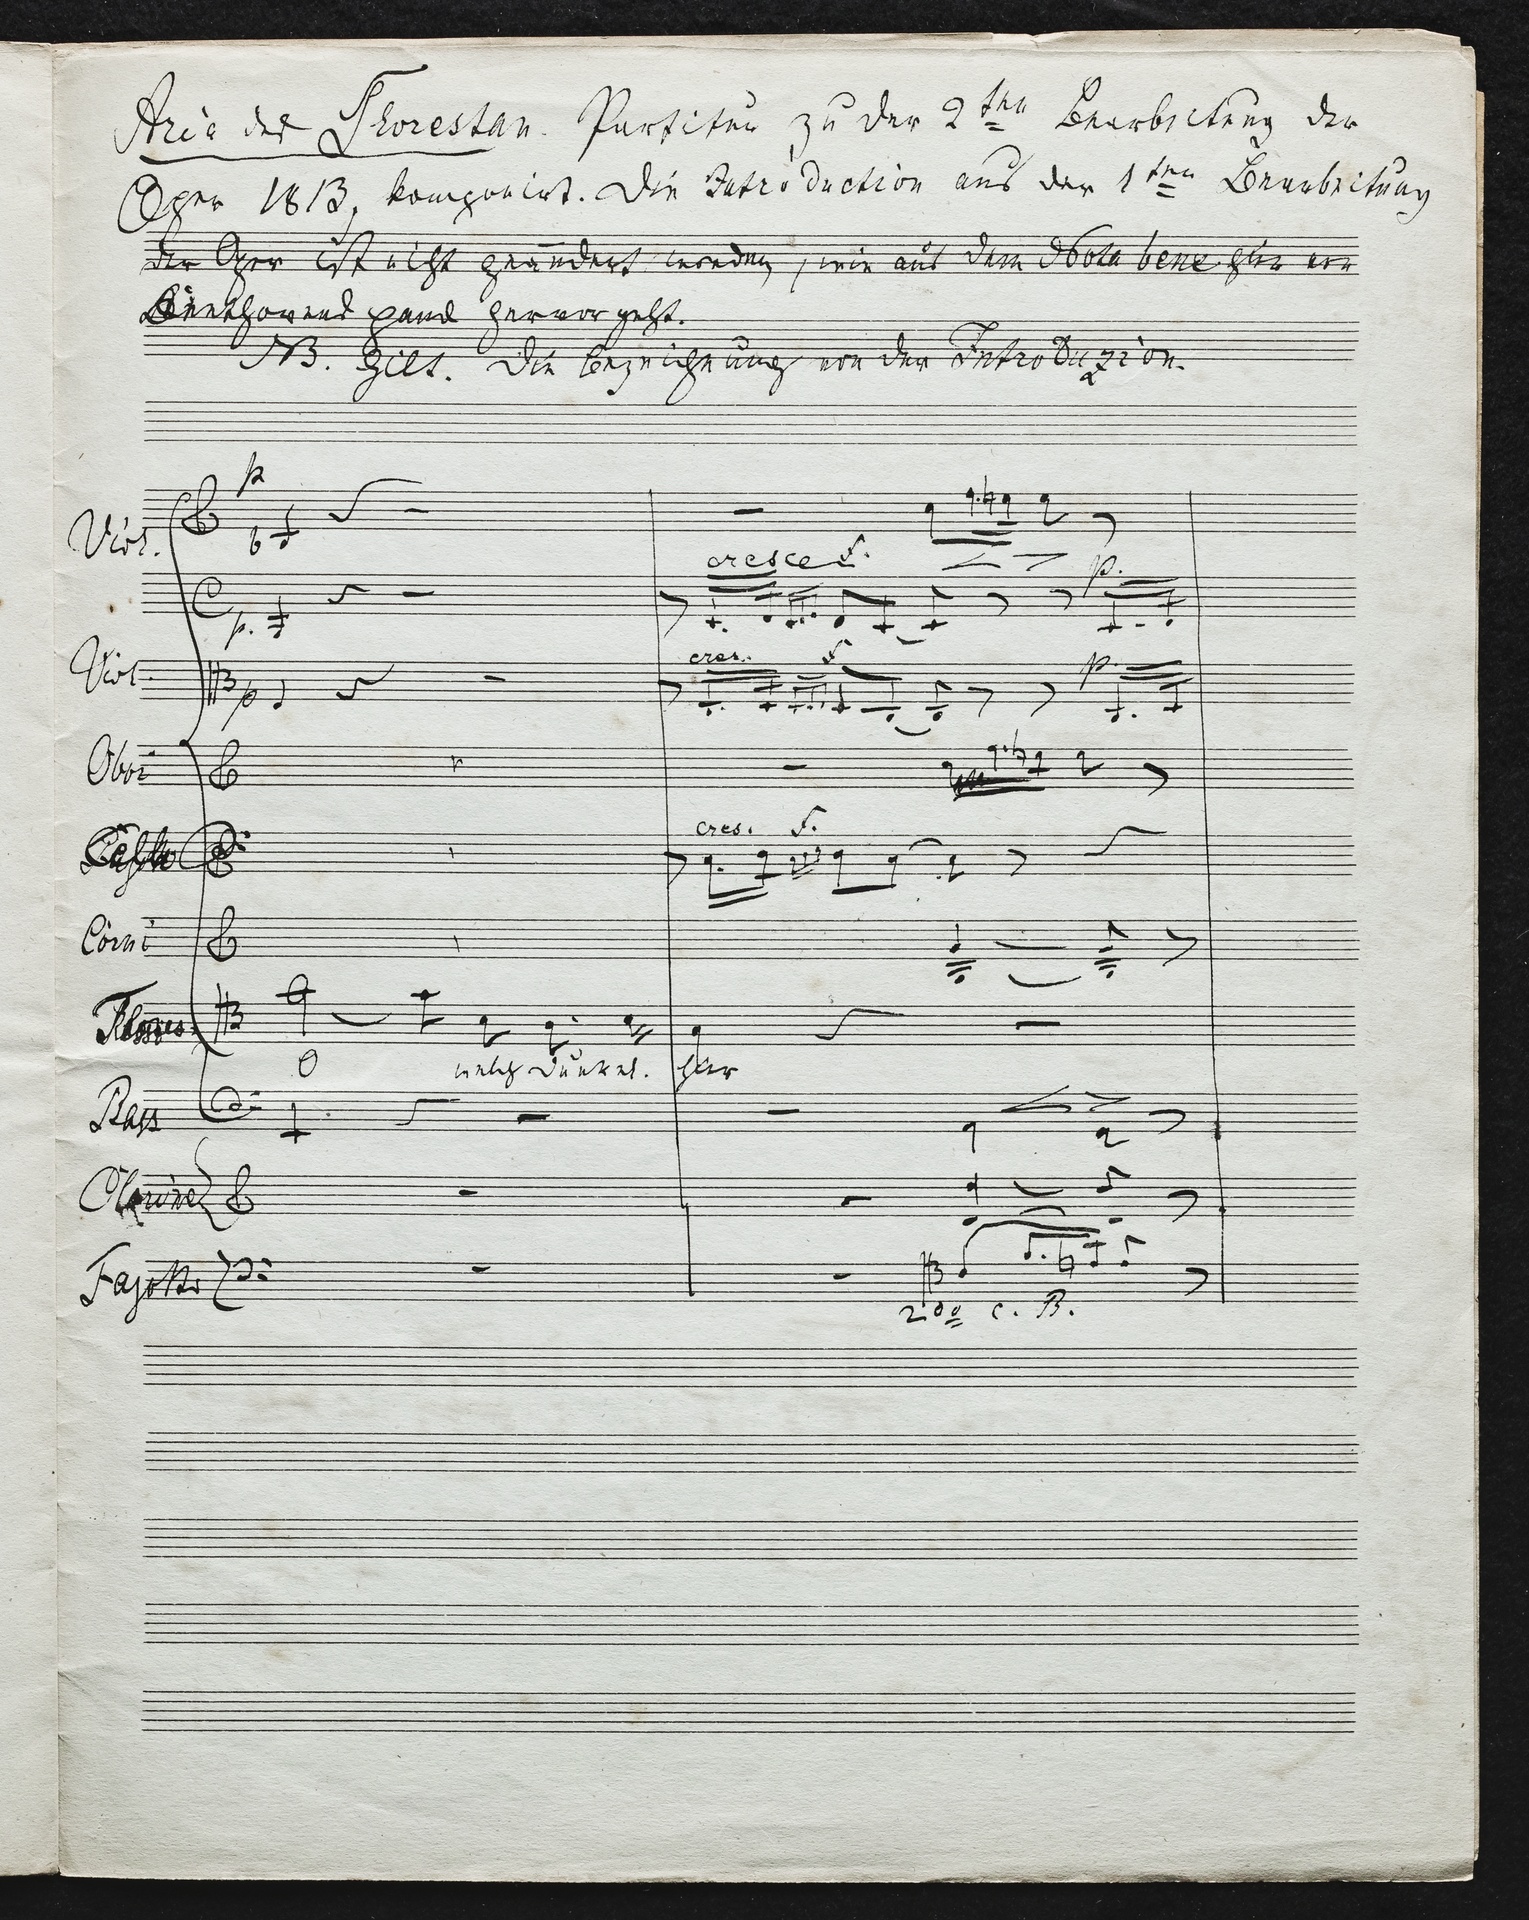 Aria des Florestan. Partitur zu der 2ten Bearbeitung der
Oper 1813, komponirt. Die Introduction aus der 1ten Bearbeitung
der Oper ist nicht geändert worden, wie aus dem Nota bene hier von
Beethovens Hand hervorgeht.
NB. gilt. Die Bezeichnung von der Introduzion.
p
Viol.
cresc f.
p. p.
cres. f. p.
Viol. p
Oboi
cres. f.
Corni
Flores.
O welch Dunkel. hier
Bass
Clarine
Fagotto
2do c. B.